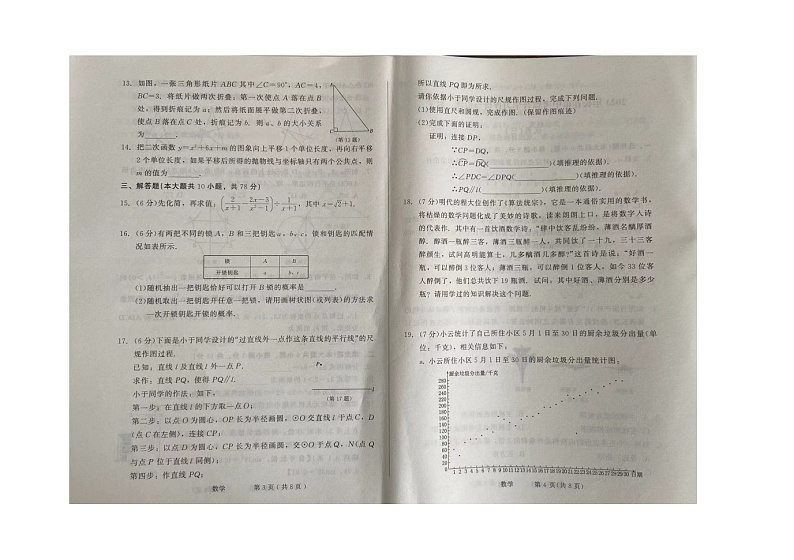 13. 如图,一张三角形纸片 ABC 其中∠C=90°, AC=4,
BC=3. 将纸片做两次折叠,第一次使点 A 落在点 B
处,得到折痕记为 a;然后将纸面展平做第二次折叠,
使点 B 落在点 C 处,折痕记为 b. 则 a、b 的大小关系
为______.
A
C
B
(第 13 题)
14. 把二次函数 y=x²+6x+m 的图象向上平移 1 个单位长度,再向右平移
2 个单位长度,如果平移后所得的抛物线与坐标轴只有两个公共点,则
m 的值为______.
三、解答题(本大题共 10 小题,共 78 分)
15. (6 分)先化简,再求值:(2/(x+1) + (2x-3)/(x²-1)) ÷ 1/(x+1),其中 x=√2+1.
16. (6 分)有两把不同的锁 A、B 和三把钥匙 a、b、c,锁和钥匙的匹配情
况如表所示.
锁 A B
开锁钥匙 a b, c
(1)随机抽出一把钥匙恰好可以打开 B 锁的概率是______;
(2)随机取出一把钥匙开任意一把锁,请用画树状图(或列表)的方法求
一次开锁钥匙开锁的概率.
17. (6 分)下面是小于同学设计的“过直线外一点作这条直线的平行线”的尺
规作图过程.
已知:直线 l 及直线 l 外一点 P.
求作:直线 PQ,使得 PQ∥l.
小于同学的作法:如下,
第一步:在直线 l 的下方取一点 O;
第二步:以点 O 为圆心,OP 长为半径画圆,⊙O 交直线 l 于点 C、D
(点 C 在左侧),连接 CP;
第三步:以点 D 为圆心,CP 长为半径画圆,交⊙O 于点 Q、N(点 Q
与点 P 位于直线 l 同侧);
第四步:作直线 PQ;
P
l
(第 17 题)
数学 第 3 页(共 8 页)
所以直线 PQ 即为所求.
请你依据小于同学设计的尺规作图过程,完成下列问题.
(1)使用直尺和圆规,完成作图.(保留作图痕迹)
(2)完成下面的证明:
证明:连接 DP,
∵CP=DQ,
∴CP=DQ(______)(填推理的依据).
∴∠PDC=∠DPQ(______)(填推理的依据).
∴PQ∥l(______)(填推理的依据).
18. (7 分)明代的程大位创作了《算法统宗》,它是一本通俗实用的数学书,
将枯燥的数学问题化成了美妙的诗歌,读来朗朗上口,是将数字入诗
的代表作. 其中有一首饮酒数学诗:“肆中饮客乱纷纷,薄酒名醨厚酒
醇. 醇酒一瓶醉三客,薄酒三瓶醉一人,共同饮了一十九,三十三客
醉颜生,试问高明能算士,几多醨酒几多醇?”这首诗是说,“好酒一
瓶,可以醉倒 3 位客人;薄酒三瓶,可以醉倒 1 位客人,如今 33 位客
人醉倒了,他们总共饮下 19 瓶酒. 试问:其中好酒、薄酒分别是多少
瓶?请用学过的知识解决这个问题.
19. (7 分)小云统计了自己所住小区 5 月 1 日至 30 日的厨余垃圾分出量(单
位:千克),相关信息如下:
a. 小云所住小区 5 月 1 日至 30 日的厨余垃圾分出量统计图:
厨余垃圾分出量/千克
280
260
240
220
200
180
160
140
120
100
80
60
40
20
0
1 2 3 4 5 6 7 8 9 10 11 12 13 14 15 16 17 18 19 20 21 22 23 24 25 26 27 28 29 30 31 日期
数学 第 4 页(共 8 页)